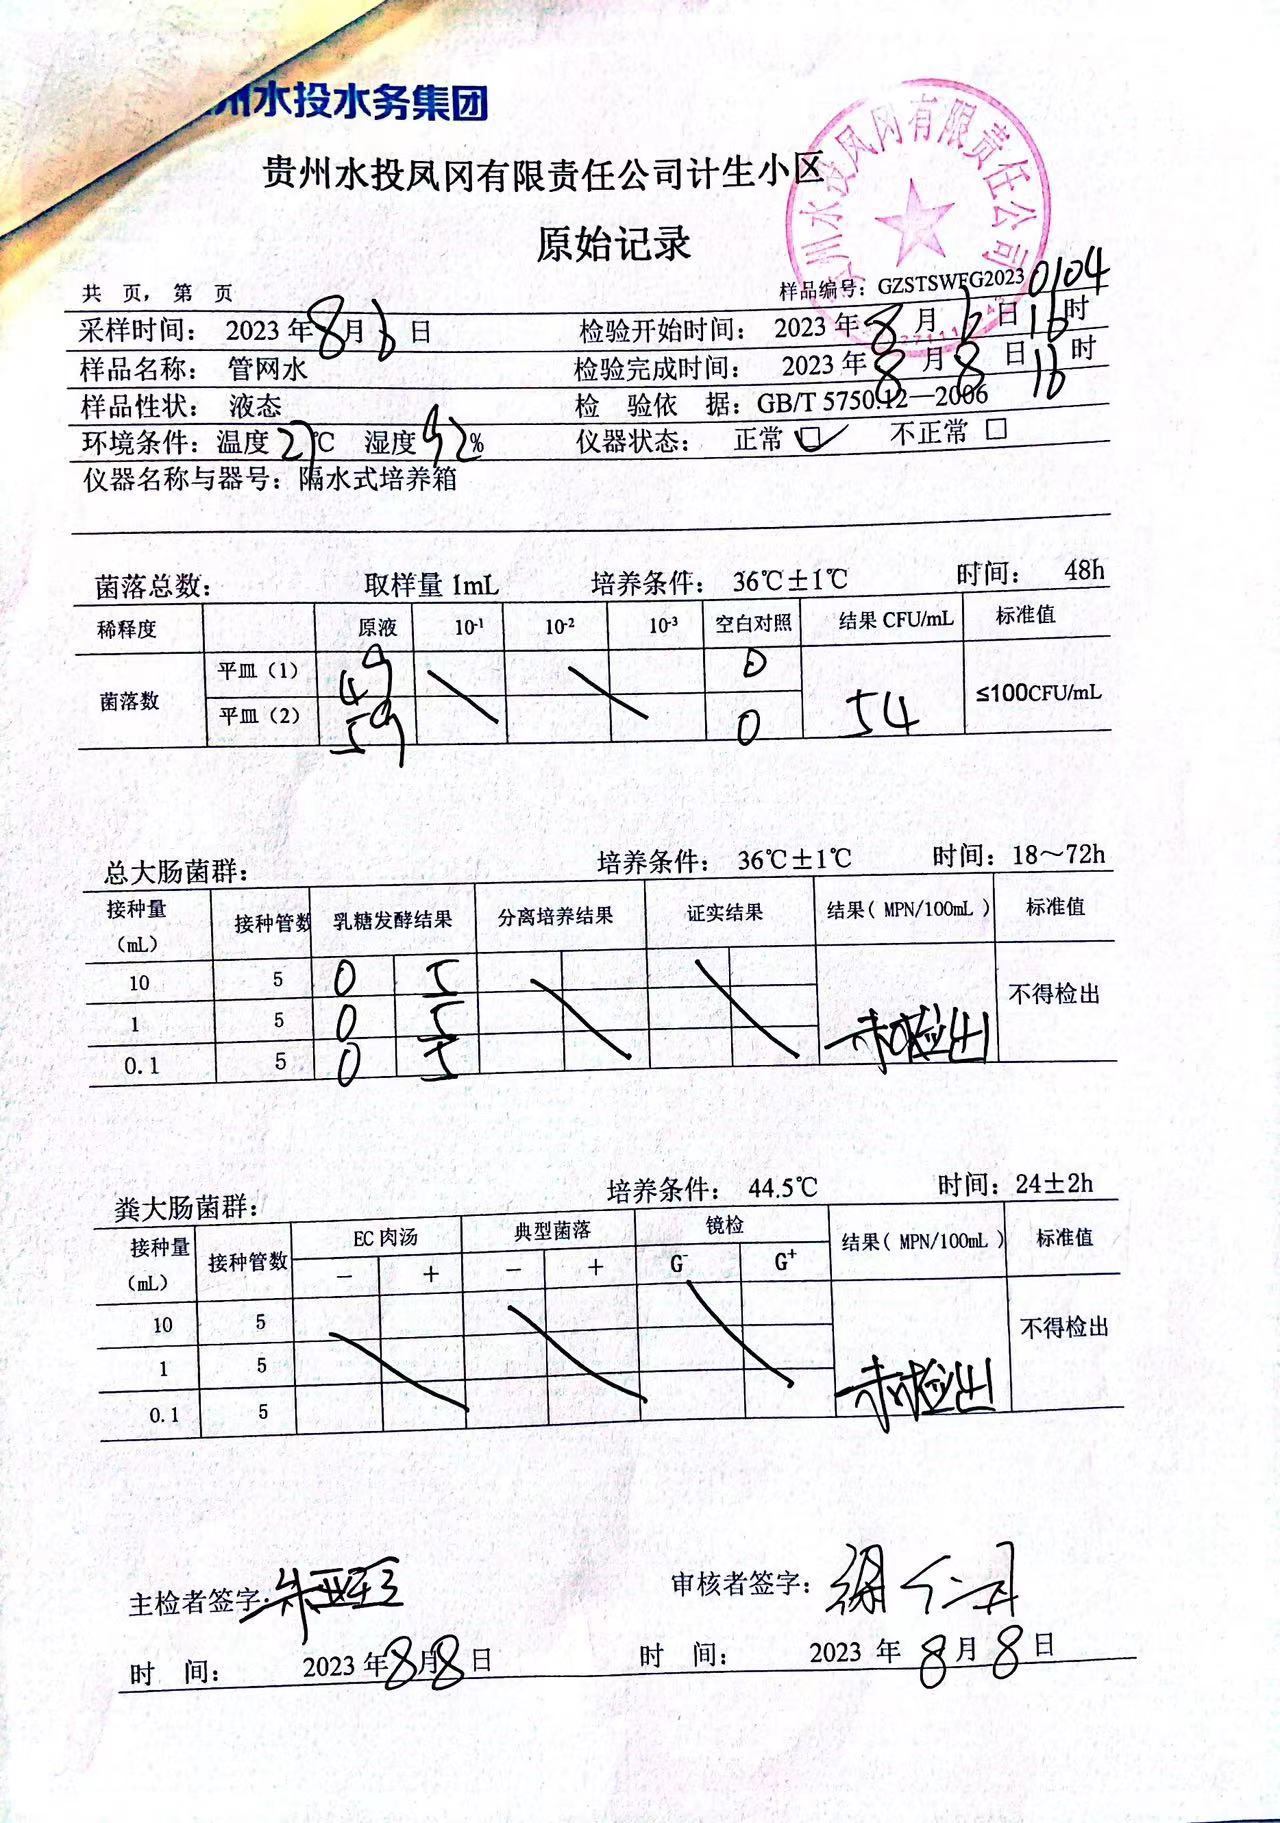 州水投水务集团
贵州水投凤冈有限责任公司计生小区
原始记录
州水投凤冈有限责任公司
共 页， 第 页 样品编号：GZSTSWFG20230104
采样时间： 2023年8月6日 检验开始时间： 2023年8月6日16时
样品名称： 管网水 检验完成时间： 2023年8月8日16时
样品性状： 液态 检 验依 据：GB/T 5750.12—2006
环境条件：温度27℃ 湿度52% 仪器状态： 正常☑ 不正常□
仪器名称与器号：隔水式培养箱
菌落总数： 取样量 1mL 培养条件： 36℃±1℃ 时间： 48h
稀释度 原液 10-1 10-2 10-3 空白对照 结果 CFU/mL 标准值
菌落数 平皿（1） 49 0 54 ≤100CFU/mL
平皿（2） 59 0
总大肠菌群： 培养条件： 36℃±1℃ 时间：18～72h
接种量（mL） 接种管数 乳糖发酵结果 分离培养结果 证实结果 结果（MPN/100mL） 标准值
10 5 0 5 未检出 不得检出
1 5 0 5
0.1 5 0 5
粪大肠菌群： 培养条件： 44.5℃ 时间：24±2h
接种量（mL） 接种管数 EC肉汤 典型菌落 镜检 结果（MPN/100mL） 标准值
－ ＋ － ＋ G- G+
10 5 未检出 不得检出
1 5
0.1 5
主检者签字： 审核者签字：
时 间： 2023年8月8日 时 间： 2023 年 8月8日